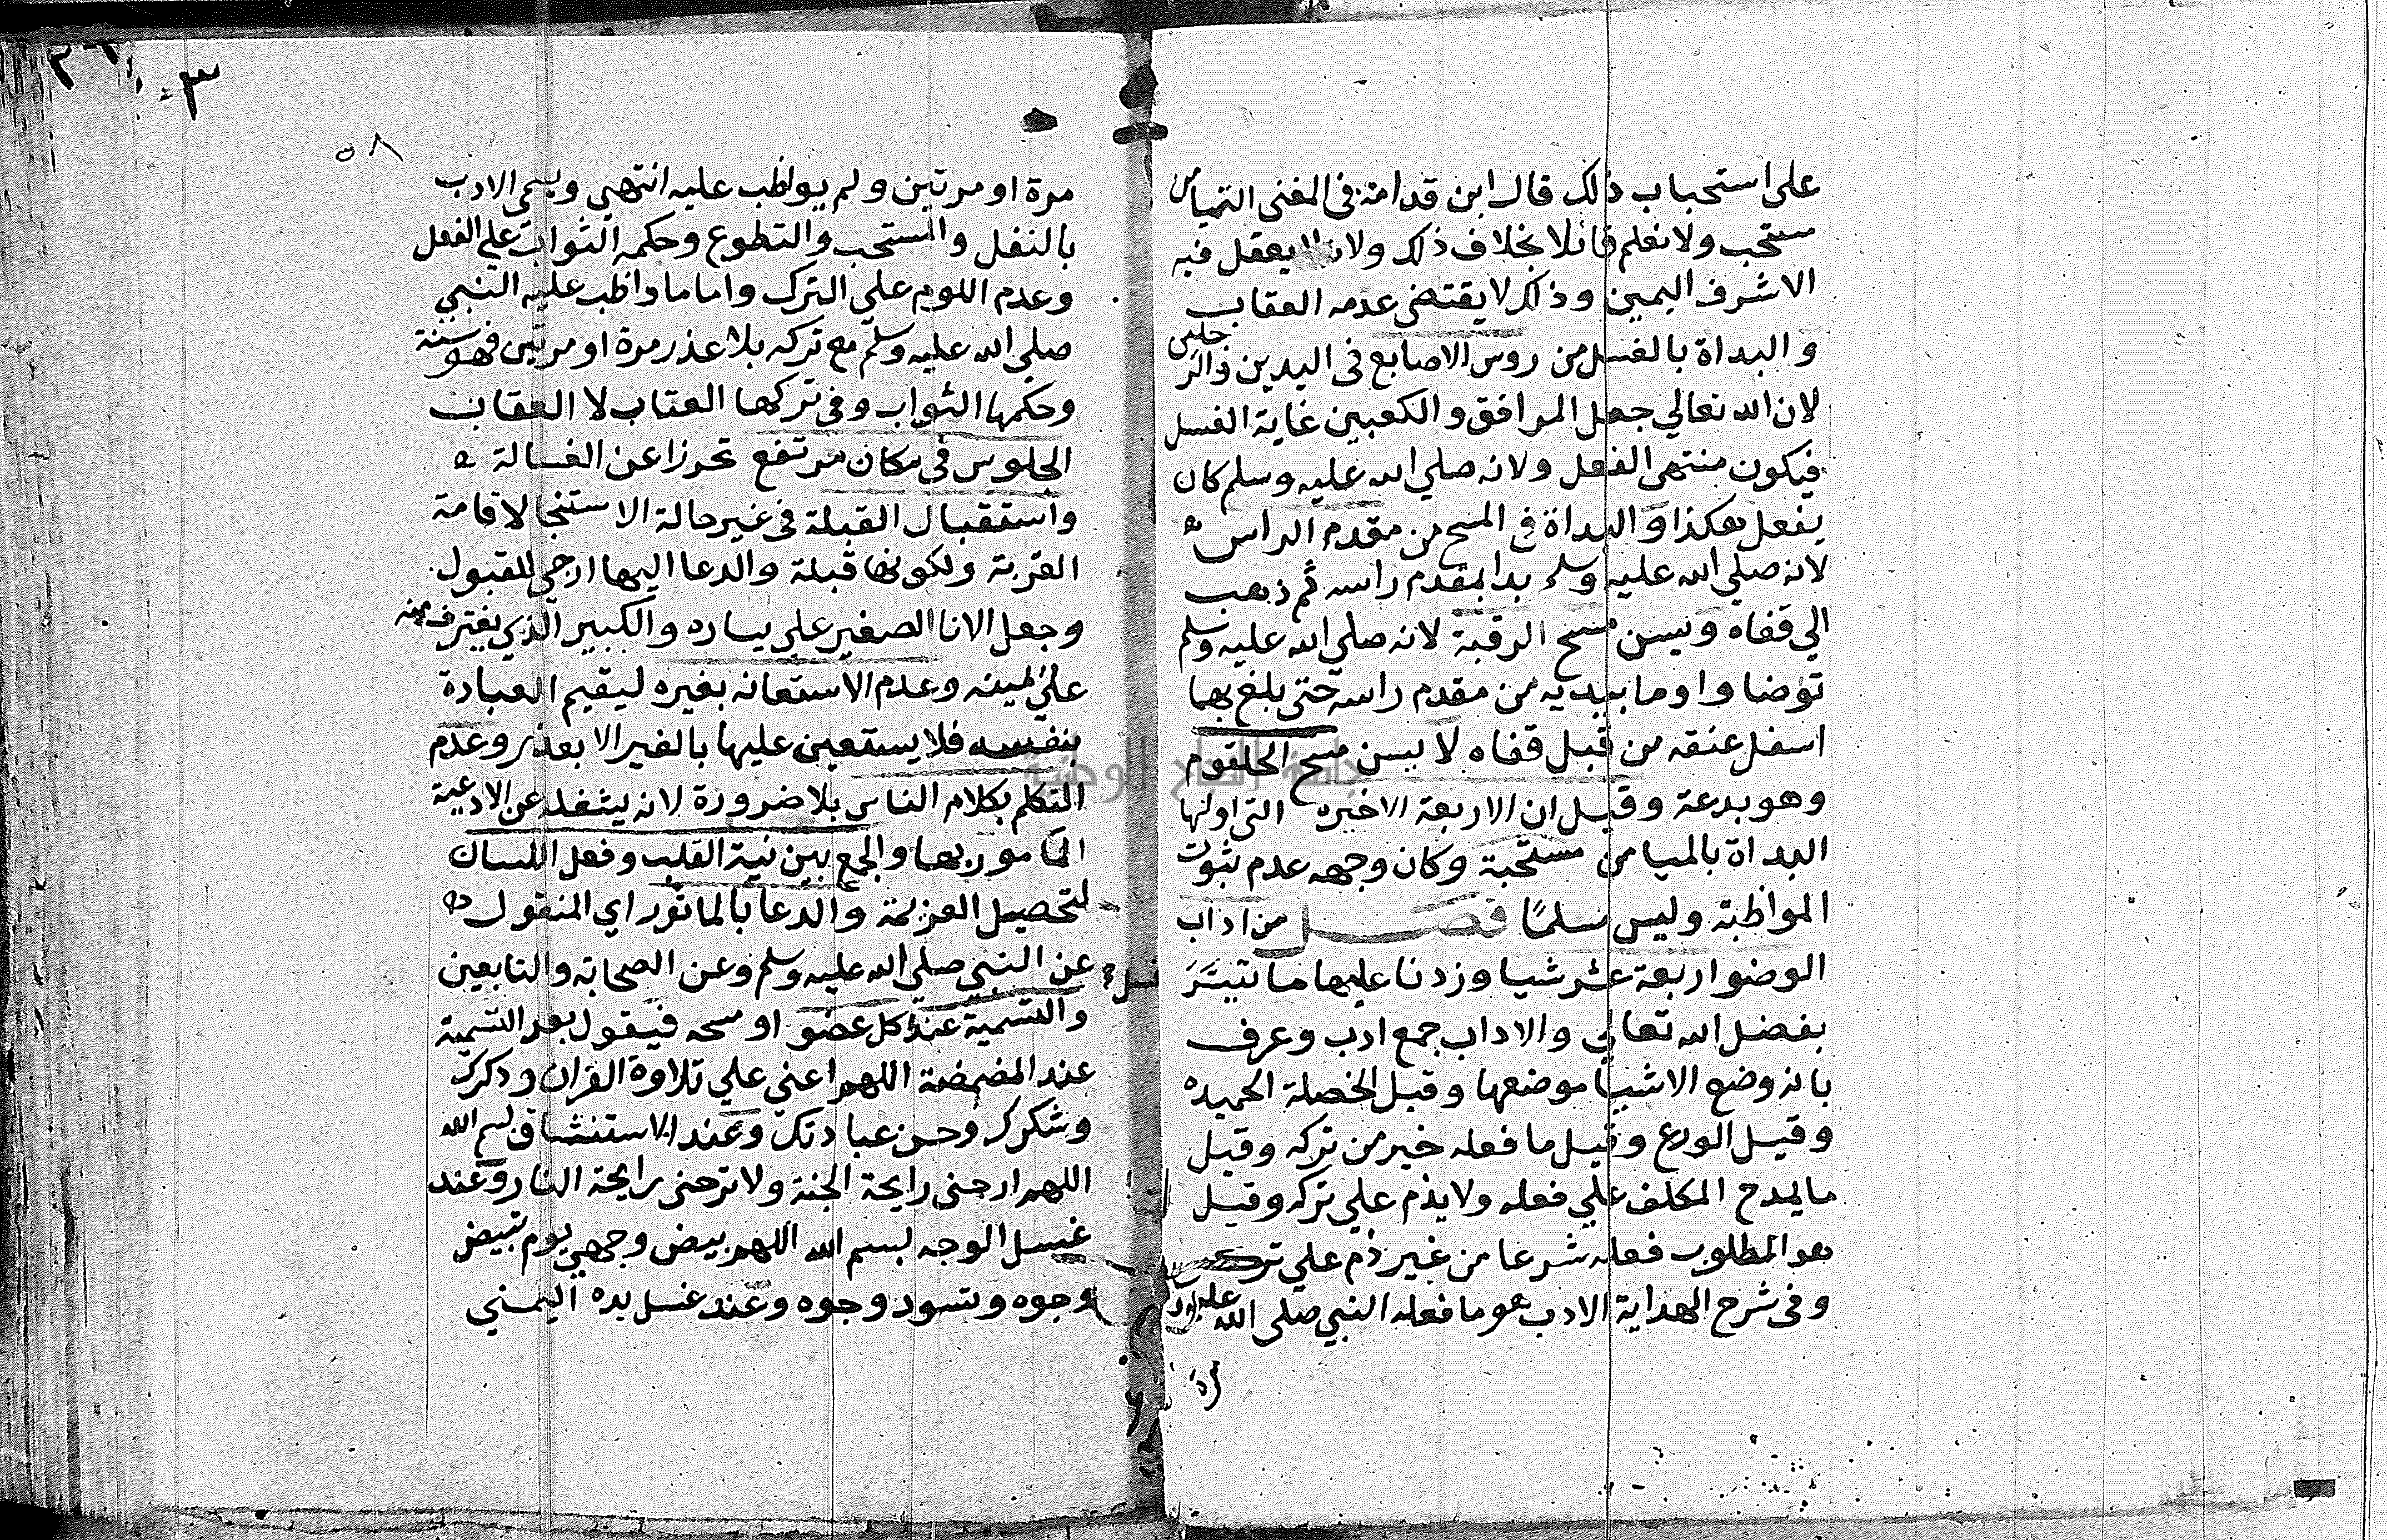 على استحباب ذلك قال ابن قدامة في المغني التيامن
مستحب ولا نعلم قائلا بخلاف ذلك ولانه لا يعقل فيه
الا شرف اليمين وذلك لا يقتضي عدمه العقاب
والبداة بالغسل من روس الاصابع في اليدين والرجلين
لان الله تعالي جعل المرافق والكعبين غاية الغسل
فيكون منتهى الفعل ولانه صلي الله عليه وسلم كان
يفعل هكذا والبداة في المسح من مقدم الراس
لانه صلي الله عليه وسلم بدا بمقدم راسه ثم ذهب
الي قفاه ويسن مسح الرقبة لانه صلي الله عليه وسلم
توضا واوما بيديه من مقدم راسه حتى بلغ بهما
اسفل عنقه من قبل قفاه لا يسن مسح الحلقوم
وهو بدعة وقيل ان الاربعة الاخيره التى اولها
البداة بالميامن مستحبة وكان وجهه عدم ثبوت
المواظبة وليس مسلمًا فصل من اداب
الوضو اربعة عشر شيا وزدنا عليها ما تيسَّرَ
بفضل الله تعالى والاداب جمع ادب وعرف
بانه وضع الاشيا موضعها وقيل الخصلة الحميده
وقيل الورع وقيل ما فعله خير من تركه وقيل
ما يمدح المكلف علي فعله ولا يذم علي تركه وقيل
هو المطلوب فعله شرعا من غير ذم علي تركه
وفي شرح الهداية الادب هو ما فعله النبي صلى الله عليه
٥٨
مرة او مرتين ولم يواظب عليه انتهي ويسمى الادب
بالنفل والمستحب والتطوع وحكمه الثواب علي الفعل
وعدم اللوم علي الترك واما ما واظب عليه النبي
صلي الله عليه وسلم مع تركه بلا عذر مرة او مرتين فهو سنة
وحكمها الثواب وفى تركها العتاب لا العقاب
الجلوس في مكان مرتفع تحرزا عن الغسالة
واستقبال القبلة في غير حالة الاستنجا لاقامة
القربة ولكونها قبلة والدعا اليها ارجى للقبول
وجعل الانا الصغير علي يساره والكبير الذي يغترف منه
علي يمينه وعدم الاستعانه بغيره ليقيم العبادة
بنفسه فلا يستعين عليها بالغير الا بعذر وعدم
التكلم بكلام الناس بلا ضرورة لانه يشغله عن الادعية
المامور بها والجمع بين نية القلب وفعل اللسان
لتحصيل العزيمة والدعا بالماثور اي المنقول
عن النبي صلي الله عليه وسلم وعن الصحابة والتابعين
والتسمية عند كل عضو او مسحه فيقول بعد التسمية
عند المضمضة اللهم اعني علي تلاوة القران وذكرك
وشكرك وحسن عبادتك وعند الاستنشاق بسم الله
اللهم ارحنى رايحة الجنة ولا ترحنى رايحة النار وعند
غسل الوجه بسم الله اللهم بيض وجهي يوم تبيض
وجوه وتسود وجوه وعند غسل يده اليمني